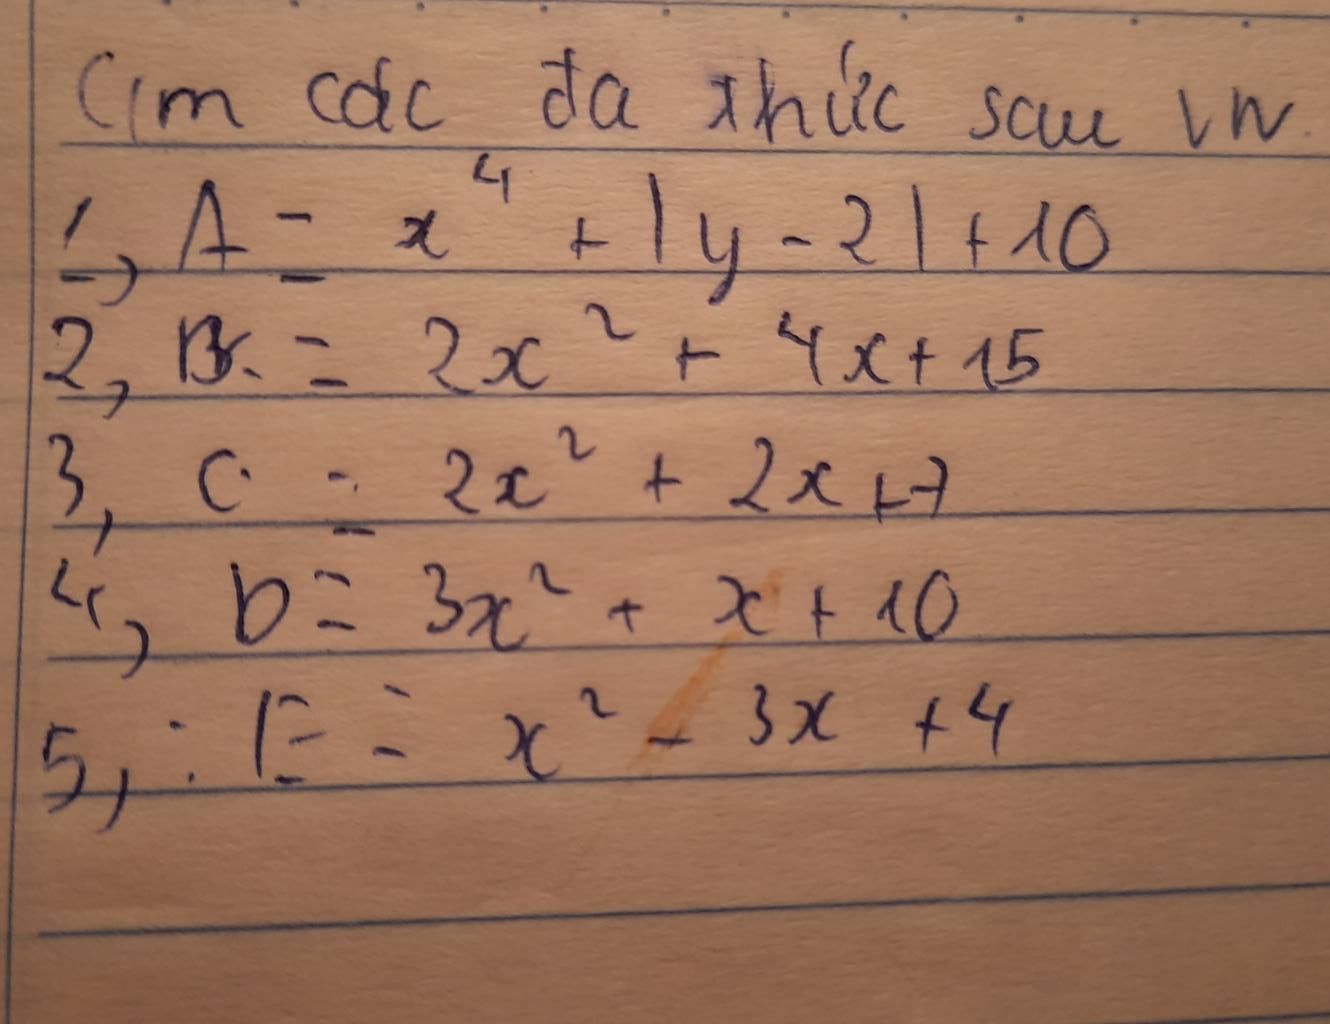 C/m các đa thức sau VN.
1, A = x⁴ + |y - 2| + 10
2, B = 2x² + 4x + 15
3, C = 2x² + 2x + 7
4, D = 3x² + x + 10
5, : E = x² - 3x + 4